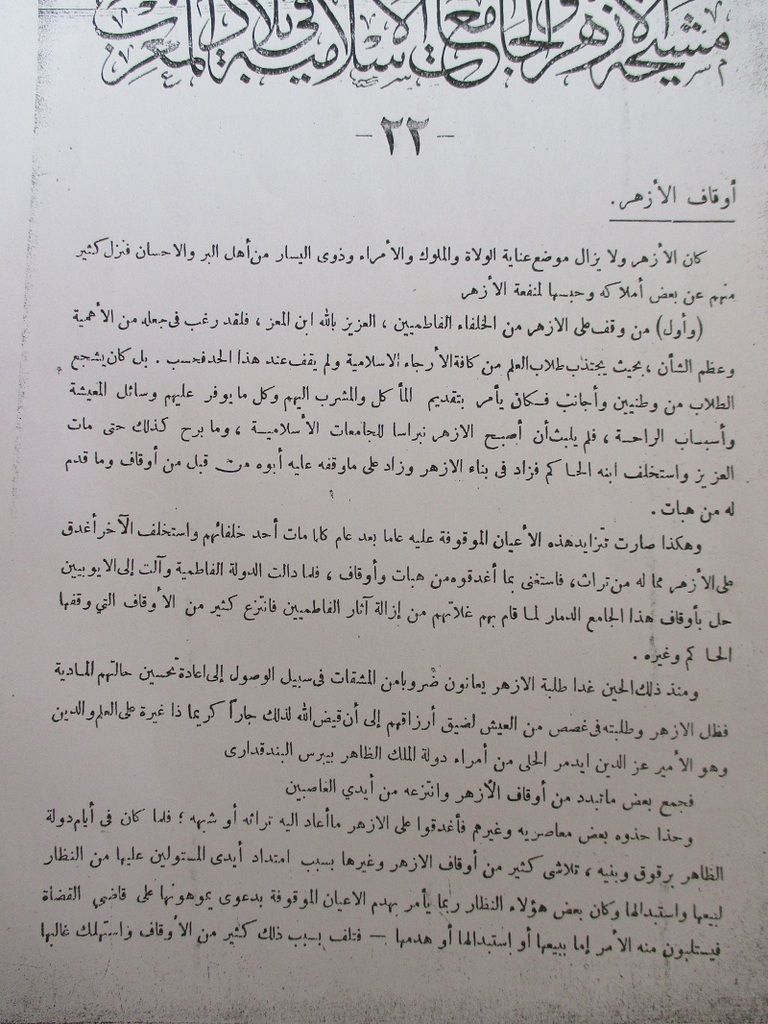 مشيخة الأزهر والجامعات الاسلامية في بلاد المغرب
- ٢٢ -
أوقاف الأزهر .
كان الأزهر ولا يزال موضع عناية الولاة والملوك والأمراء وذوى اليسار من أهل البر والاحسان فنزل كثير
منهم عن بعض أملاكه وحبسها لمنفعة الأزهر
(وأول) من وقف على الازهر من الخلفاء الفاطميين ، العزيز بالله ابن المعز ، فلقد رغب فى جعله من الأهمية
وعظم الشأن ، بحيث يجتذب طلاب العلم من كافة الأرجاء الاسلامية ولم يقف عند هذا الحد فحسب . بل كان يشجع
الطلاب من وطنيين وأجانب فكان يأمر بتقديم المأكل والمشرب اليهم وكل ما يوفر عليهم وسائل المعيشة
وأسباب الراحة ، فلم يلبث أن أصبح الازهر نبراسا للجامعات الأسلامية ، وما برح كذلك حتى مات
العزيز واستخلف ابنه الحاكم فزاد فى بناء الازهر وزاد على ماوقفه عليه أبوه من قبل من أوقاف وما قدم
له من هبات .
وهكذا صارت تتزايد هذه الأعيان الموقوفة عليه عاما بعد عام كلما مات أحد خلفائهم واستخلف الآخر أغدق
على الأزهر مما له من تراث، فاستغنى بما أغدقوه من هبات وأوقاف ، فلما دالت الدولة الفاطمية وآلت إلى الايوبيين
حل بأوقاف هذا الجامع الدمار لما قام بهم غلاتهم من إزالة آثار الفاطميين فانتزع كثير من الأوقاف التي وقفها
الحاكم وغيره .
ومنذ ذلك الحين غدا طلبة الازهر يعانون ضروبا من المشقات فى سبيل الوصول إلى اعادة تحسين حالتهم المادية
فظل الازهر وطلبته فى غصص من العيش لضيق أرزاقهم إلى أن قيض الله لذلك جاراً كريما ذا غيرة على العلم والدين
وهو الأمير عز الدين ايدمر الحلى من أمراء دولة الملك الظاهر بيبرس البندقدارى
فجمع بعض ماتبدد من أوقاف الأزهر وانتزعه من أيدي الغاصبين
وحذا حذوه بعض معاصريه وغيرهم فأغدقوا على الازهر ماأعاد اليه تراثه أو شبهه ؛ فلما كان فى أيام دولة
الظاهر برقوق وبنيه ، تلاشى كثير من أوقاف الازهر وغيرها بسبب امتداد أيدى المستولين عليها من النظار
لبيعها واستبدالها وكان بعض هؤلاء النظار ربما يأمر بهدم الاعيان الموقوفة بدعوى يموهونها على قاضي القضاة
فيستلبون منه الأمر إما ببيعها أو إستبدالها أو هدمها — فتلف بسبب ذلك كثير من الأوقاف واستهلك غالبها